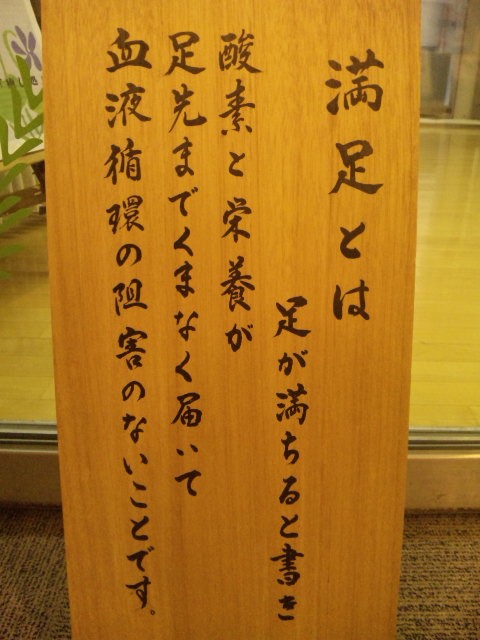 満足とは
足が満ちると書き
酸素と栄養が
足先までくまなく届いて
血液循環の阻害のないことです。